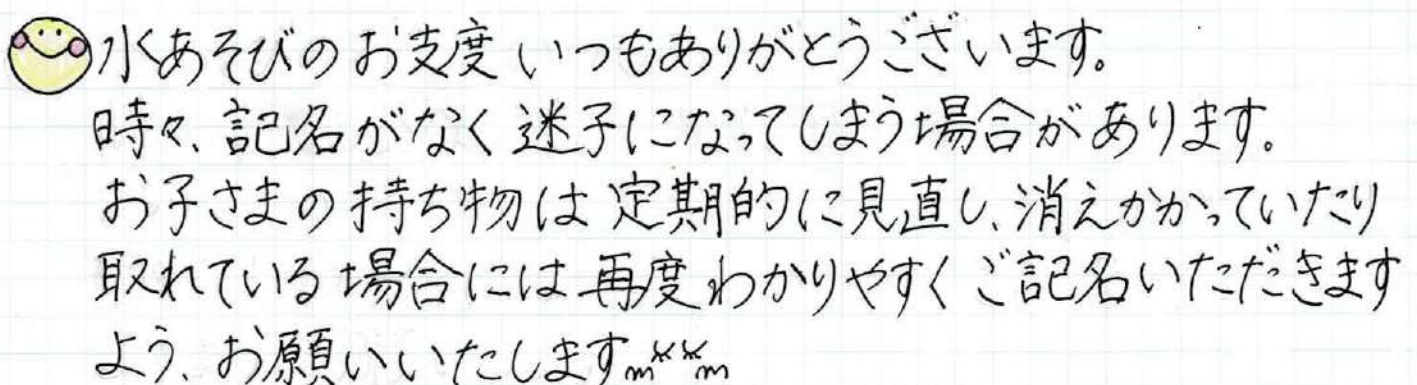 水あそびのお支度いつもありがとうございます。
時々、記名がなく迷子になってしまう場合があります。
お子さまの持ち物は定期的に見直し、消えかかっていたり
取れている場合には再度わかりやすくご記名いただきます
よう、お願いいたします m××m